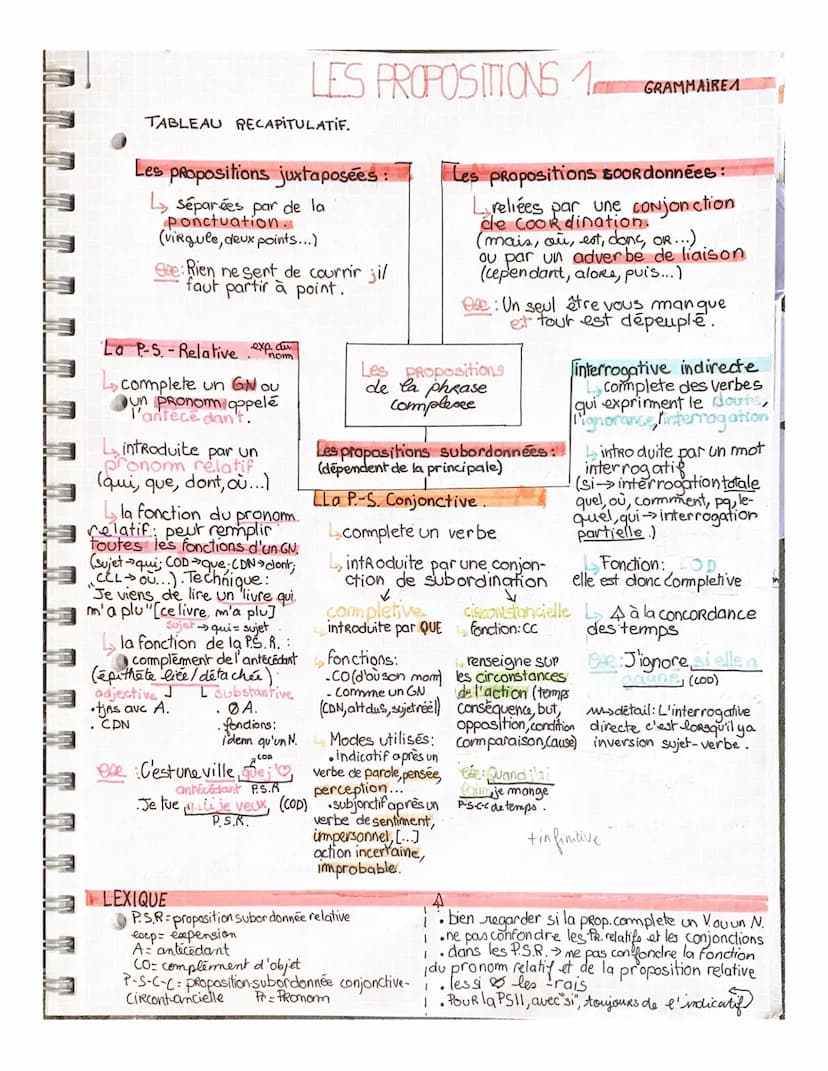 LES PROPOSITIONS 1
GRAMMAIRE 1
TABLEAU RECAPITULATIF.
Les propositions juxtaposées :
↳ séparées par de la
ponctuation.
(virgule, deux points...)
Exe : Rien ne sert de courrir ; il
faut partir à point.
Les propositions coordonnées :
↳ reliées par une conjonction
de coordination.
(mais, où, est, donc, or...)
ou par un adverbe de liaison
(cependant, alors, puis...)
Exe : Un seul être vous manque
et tout est dépeuplé.
Les propositions
de la phrase
complexe
Les propositions subordonnées :
(dépendent de la principale)
La P-S.-Relative. exp. du
nom
↳ complete un GN ou
un pronom appelé
l'antécédant.
↳ introduite par un
pronom relatif
(qui, que, dont, où...)
↳ la fonction du pronom
relatif : peut remplir
toutes les fonctions d'un GN.
(sujet → qui; COD → que; CDN → dont;
CCL → où...). Technique :
"Je viens de lire un livre qui
m'a plu" [ce livre m'a plu]
sujet → qui = sujet.
↳ la fonction de la P.S.R. :
complément de l'antécédant
(épithète liée/détachée) :
adjective ↲ ↳ substantive
• tjrs avc A.
• CDN
• Ø A.
• fonctions :
idem qu'un N.
Exe : C'est une ville que j'♡
COD
antécédant P.S.R
. Je tue qui je veux (COD)
P.S.R.
La P.-S. Conjonctive.
↳ complete un verbe
↳ introduite par une conjon-
ction de subordination
↙ ↘
completive
introduite par QUE
↳ fonctions :
- CO (d'où son nom)
- Comme un GN
(CDN, att du s, sujet réel)
↳ Modes utilisés :
• indicatif après un
verbe de parole, pensée,
perception...
• subjonctif après un
verbe de sentiment,
impersonnel, [...]
action incertaine,
improbable.
circonstancielle
↳ fonction : CC
↳ renseigne sur
les circonstances
de l'action (temps
conséquence, but,
opposition, condition
comparaison, cause)
Exe : Quand j'ai
faim, je mange
P-S-C-C de temps.
+ infinitive
interrogative indirecte
↳ complete des verbes
qui expriment le doute,
l'ignorance, l'interrogation
↳ introduite par un mot
interrogatif
(si → interrogation totale
quel, où, comment, pq, le-
quel, qui → interrogation
partielle.)
↳ Fonction : COD
elle est donc completive
↳ ⚠ à la concordance
des temps
Exe : J'ignore si elle a
gagné, (COD)
détail : L'interrogative
directe c'est lorsqu'il y a
inversion sujet-verbe.
LEXIQUE
P.S.R = proposition subordonnée relative
exp = expension
A = antécédant
CO = complément d'objet
P-S-C-C = proposition-subordonnée conjonctive-
circontancielle Pr = Pronom
⚠
• bien regarder si la prop. complete un V. ou un N.
• ne pas confondre les Pr. relatifs et les conjonctions
• dans les P.S.R. → ne pas confondre la fonction
du pronom relatif et de la proposition relative
• les si les -rais
• Pour la PSII, avec "si", toujours de l'indicatif